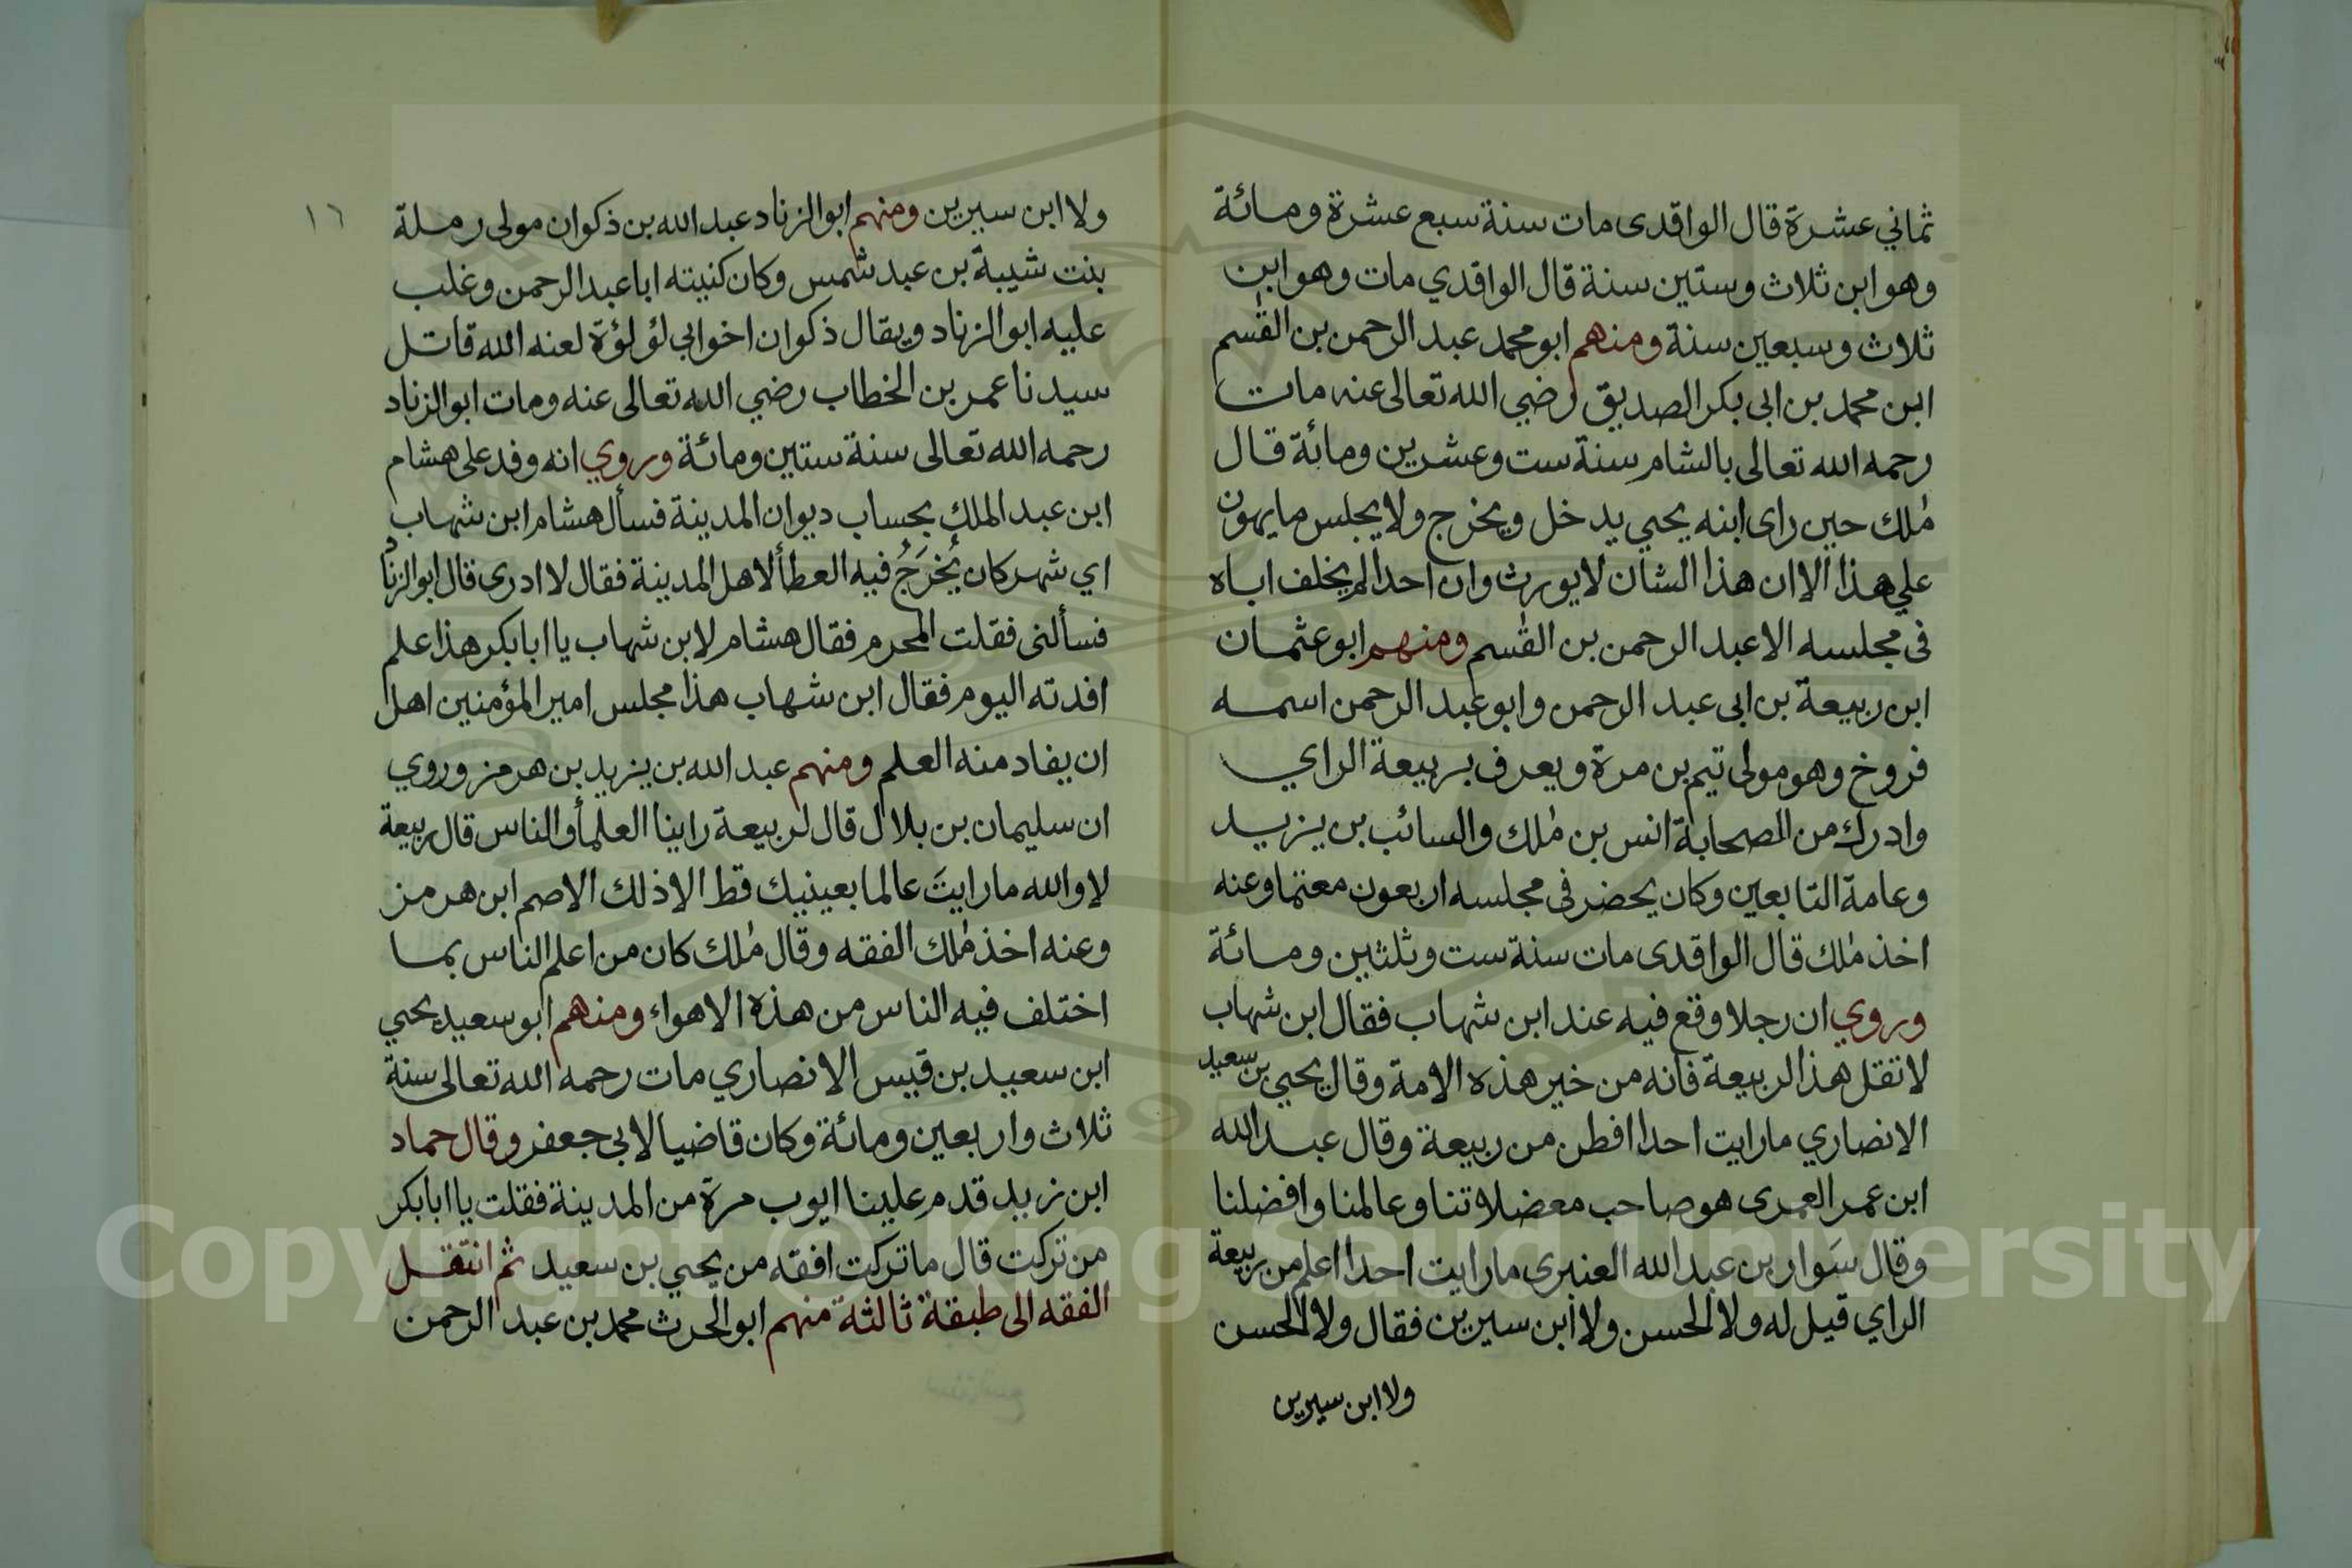 ثماني عشرة قال الواقدى مات سنة سبع عشرة ومائة
وهو ابن ثلاث وستين سنة قال الواقدي مات وهو ابن
ثلاث وسبعين سنة ومنهم ابو محمد عبد الرحمن بن القٰسم
ابن محمد بن ابى بكر الصديق رضي الله تعالى عنه مات
رحمه الله تعالى بالشام سنة ست وعشرين ومائة قال
مٰلك حين راى ابنه يحيي يدخل ويخرج ولا يجلس ما يهون
علي هذا الا ان هذا الشان لا يورث وان احدا لم يخلف اباه
فى مجلسه الا عبد الرحمن بن القٰسم ومنهم ابو عثمان
ابن ربيعة بن ابى عبد الرحمن وابو عبد الرحمن اسمه
فروخ وهو مولى تيم بن مرة ويعرف بربيعة الراي
وادرك من الصحابة انس بن مٰلك والسائب بن يزيد
وعامة التابعين وكان يحضر فى مجلسه اربعون معتما وعنه
اخذ مٰلك قال الواقدى مات سنة ست وثلثين ومائة
وروي ان رجلا وقع فيه عند ابن شهاب فقال ابن شهاب
لا تقل هذا لربيعة فانه من خير هذه الامة وقال يحيي بن سعيد
الانصاري ما رايت احدا افطن من ربيعة وقال عبد الله
ابن عمر العمرى هو صاحب معضلاتنا وعالمنا وافضلنا
وقال سَوار بن عبد الله العنبرى ما رايت احدا اعلم من ربيعة
الراي قيل له ولا الحسن ولا ابن سيرين فقال ولا الحسن
ولا ابن سيرين
١٦
ولا ابن سيرين ومنهم ابو الزناد عبد الله بن ذكوان مولى رملة
بنت شيبة بن عبد شمس وكان كنيته ابا عبد الرحمن وغلب
عليه ابو الزناد ويقال ذكوان اخو ابي لؤلؤة لعنه الله قاتل
سيدنا عمر بن الخطاب رضي الله تعالى عنه ومات ابو الزناد
رحمه الله تعالى سنة ستين ومائة وروي انه وفد على هشام
ابن عبد الملك بحساب ديوان المدينة فسأل هشام ابن شهاب
اي شهر كان يُخرَجُ فيه العطأ لاهل المدينة فقال لا ادرى قال ابو الزناد
فسألنى فقلت المحرم فقال هشام لابن شهاب يا ابا بكر هذا علم
افدته اليوم فقال ابن شهاب هذا مجلس امير المؤمنين اهل
ان يفاد منه العلم ومنهم عبد الله بن يزيد بن هرمز وروي
ان سليمان بن بلال قال لربيعة راينا العلمأ والناس قال ربيعة
لا والله ما رايتَ عالما بعينيك قط الا ذلك الاصم ابن هرمز
وعنه اخذ مٰلك الفقه وقال مٰلك كان من اعلم الناس بما
اختلف فيه الناس من هذه الاهواء ومنهم ابو سعيد يحيي
ابن سعيد بن قيس الانصاري مات رحمه الله تعالى سنة
ثلاث واربعين ومائة وكان قاضيا لابى جعفر وقال حماد
ابن زيد قدم علينا ايوب مرة من المدينة فقلت يا ابا بكر
من تركت قال ما تركت افقه من يحيي بن سعيد ثم انتقل
الفقه الى طبقة ثالثة منهم ابو الحرث محمد بن عبد الرحمن
Copyright © King Saud University